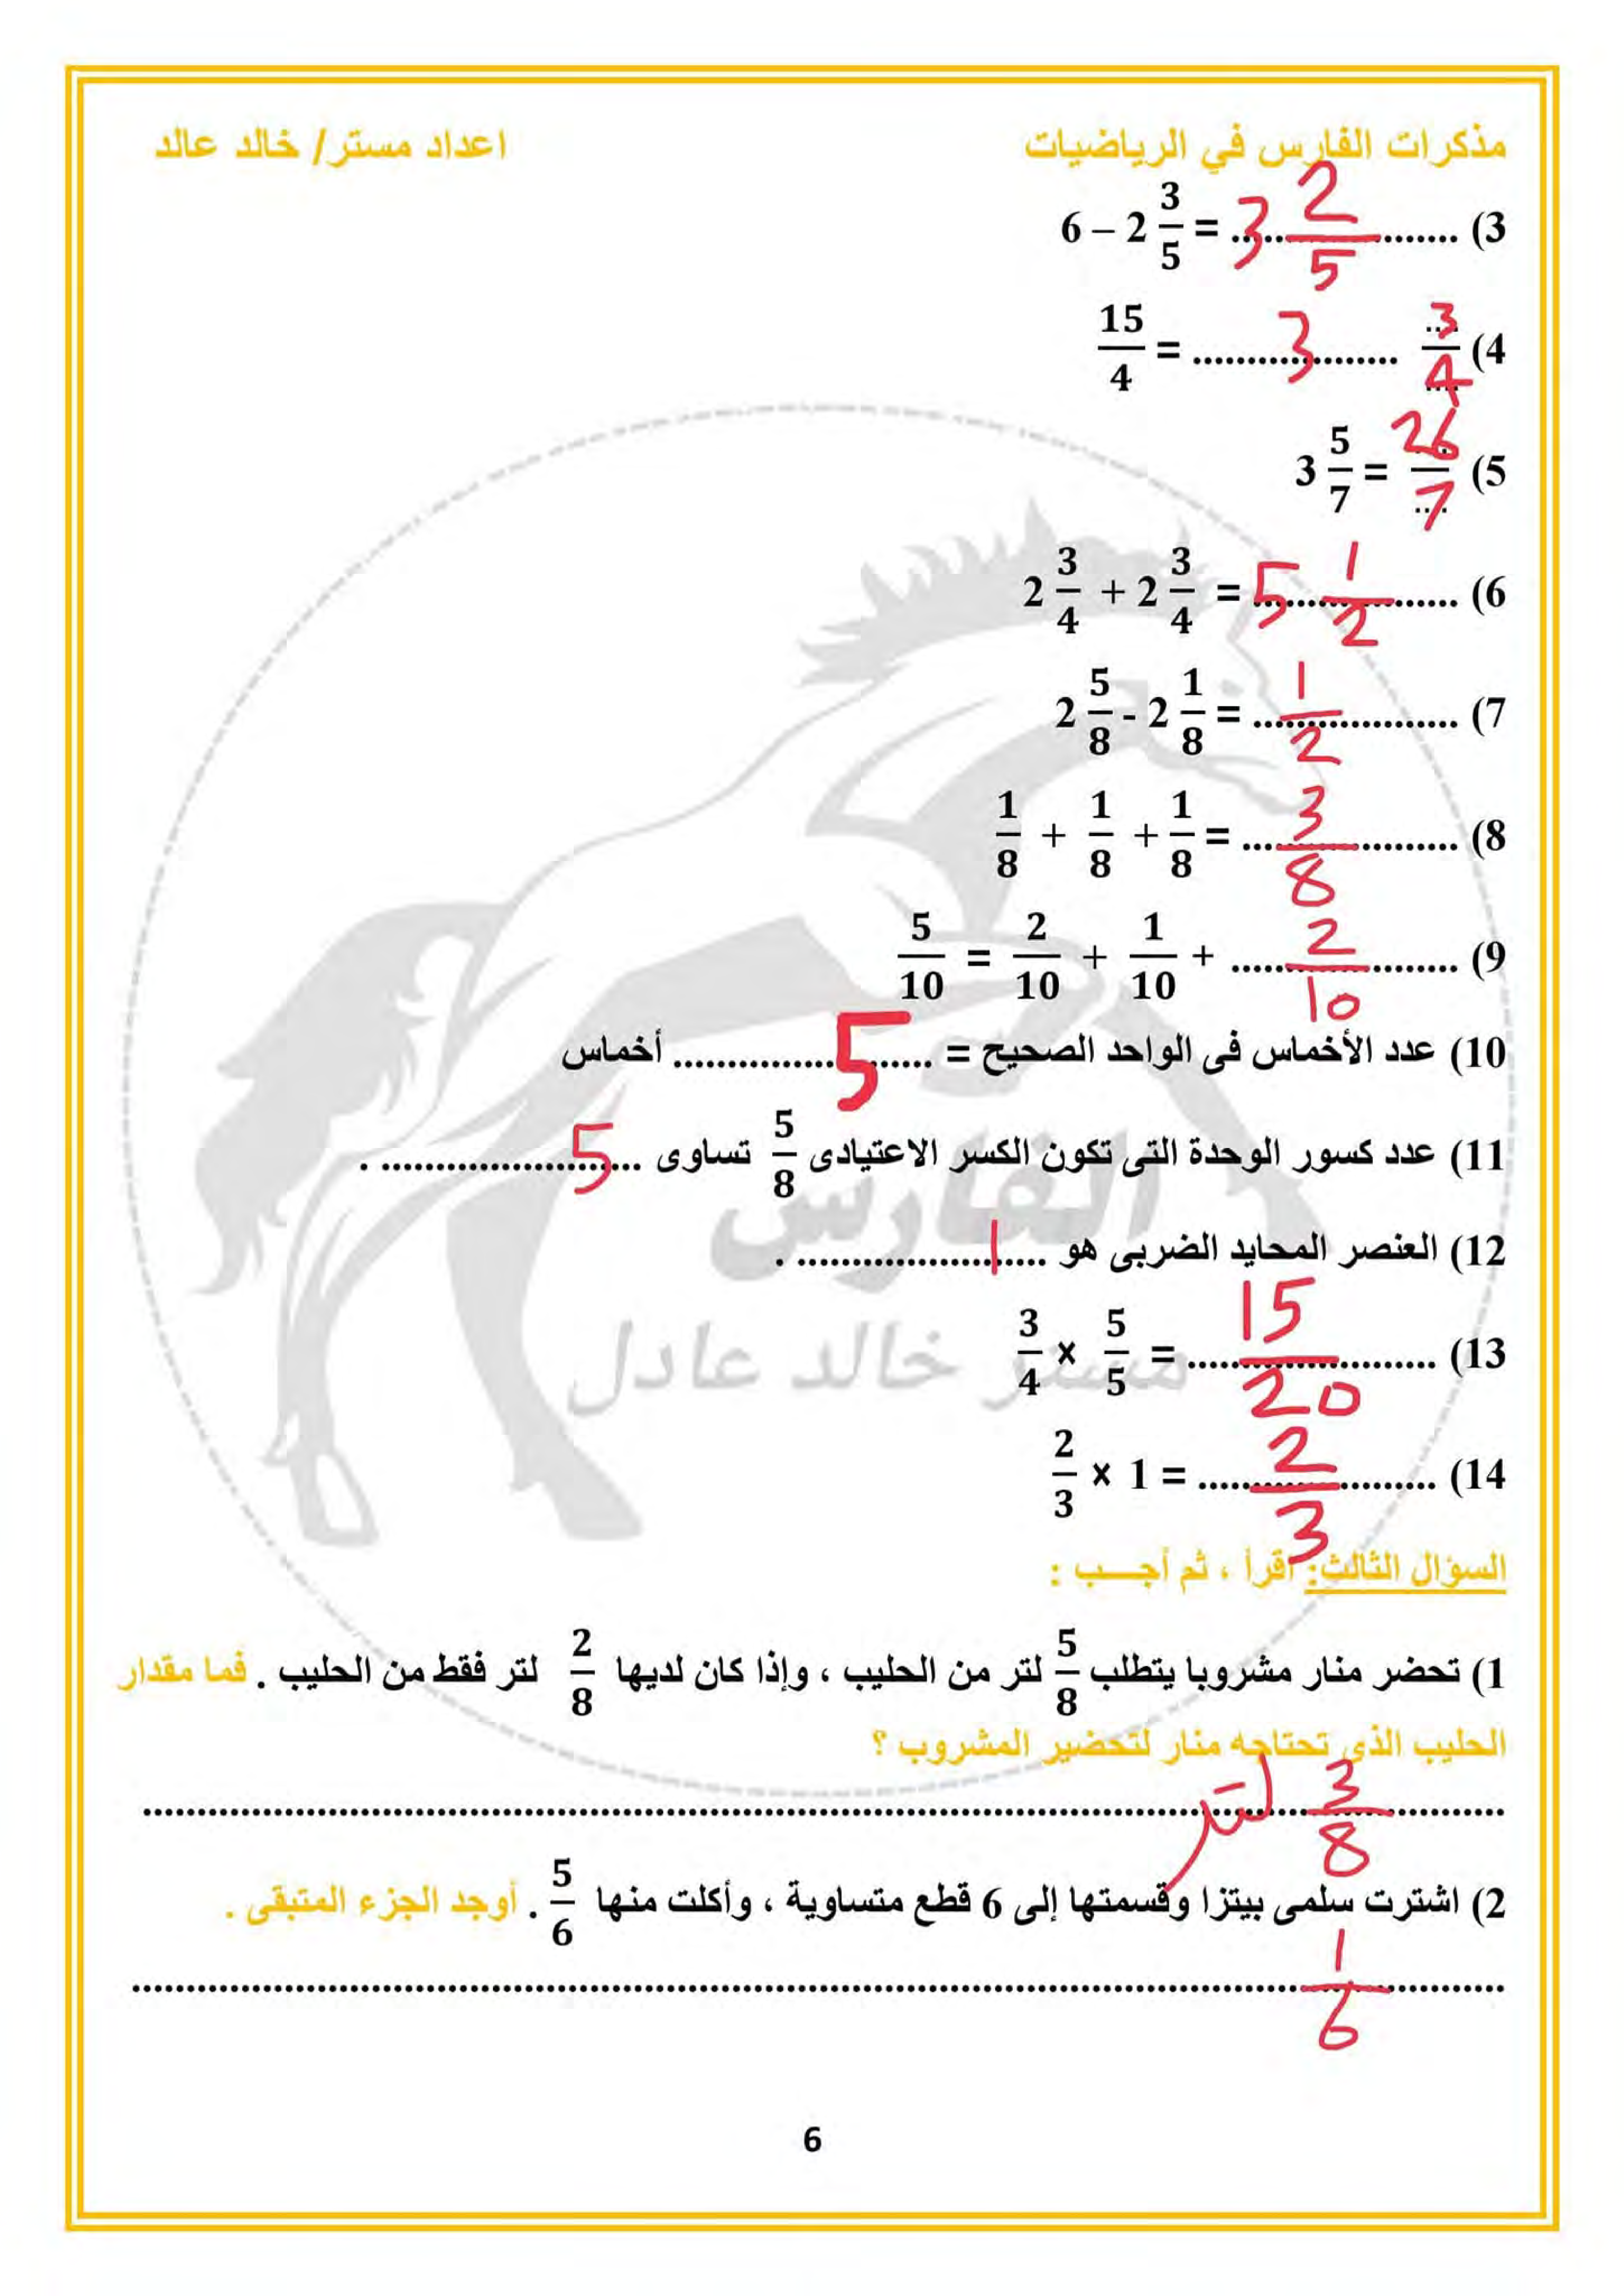 مذكرات الفارس في الرياضيات اعداد مستر/ خالد عالد
3) 6 – 2 3/5 = .......3 2/5.......
4) 15/4 = .......3....... 3/4
5) 3 5/7 = 26/7
6) 2 3/4 + 2 3/4 = .......5 1/2.......
7) 2 5/8 - 2 1/8 = .......1/2.......
8) 1/8 + 1/8 + 1/8 = .......3/8.......
9) 5/10 = 2/10 + 1/10 + .......2/10.......
10) عدد الأخماس فى الواحد الصحيح = .......5....... أخماس
11) عدد كسور الوحدة التى تكون الكسر الاعتيادى 5/8 تساوى .......5....... .
12) العنصر المحايد الضربى هو .......1....... .
13) 3/4 × 5/5 = .......15/20.......
14) 2/3 × 1 = .......2/3.......
السؤال الثالث: اقرأ ، ثم أجـــب :
1) تحضر منار مشروبا يتطلب 5/8 لتر من الحليب ، وإذا كان لديها 2/8 لتر فقط من الحليب . فما مقدار
الحليب الذى تحتاجه منار لتحضير المشروب ؟
3/8 لتر
2) اشترت سلمى بيتزا وقسمتها إلى 6 قطع متساوية ، وأكلت منها 5/6 . أوجد الجزء المتبقى .
1/6
الفارس
مستر خالد عادل
6